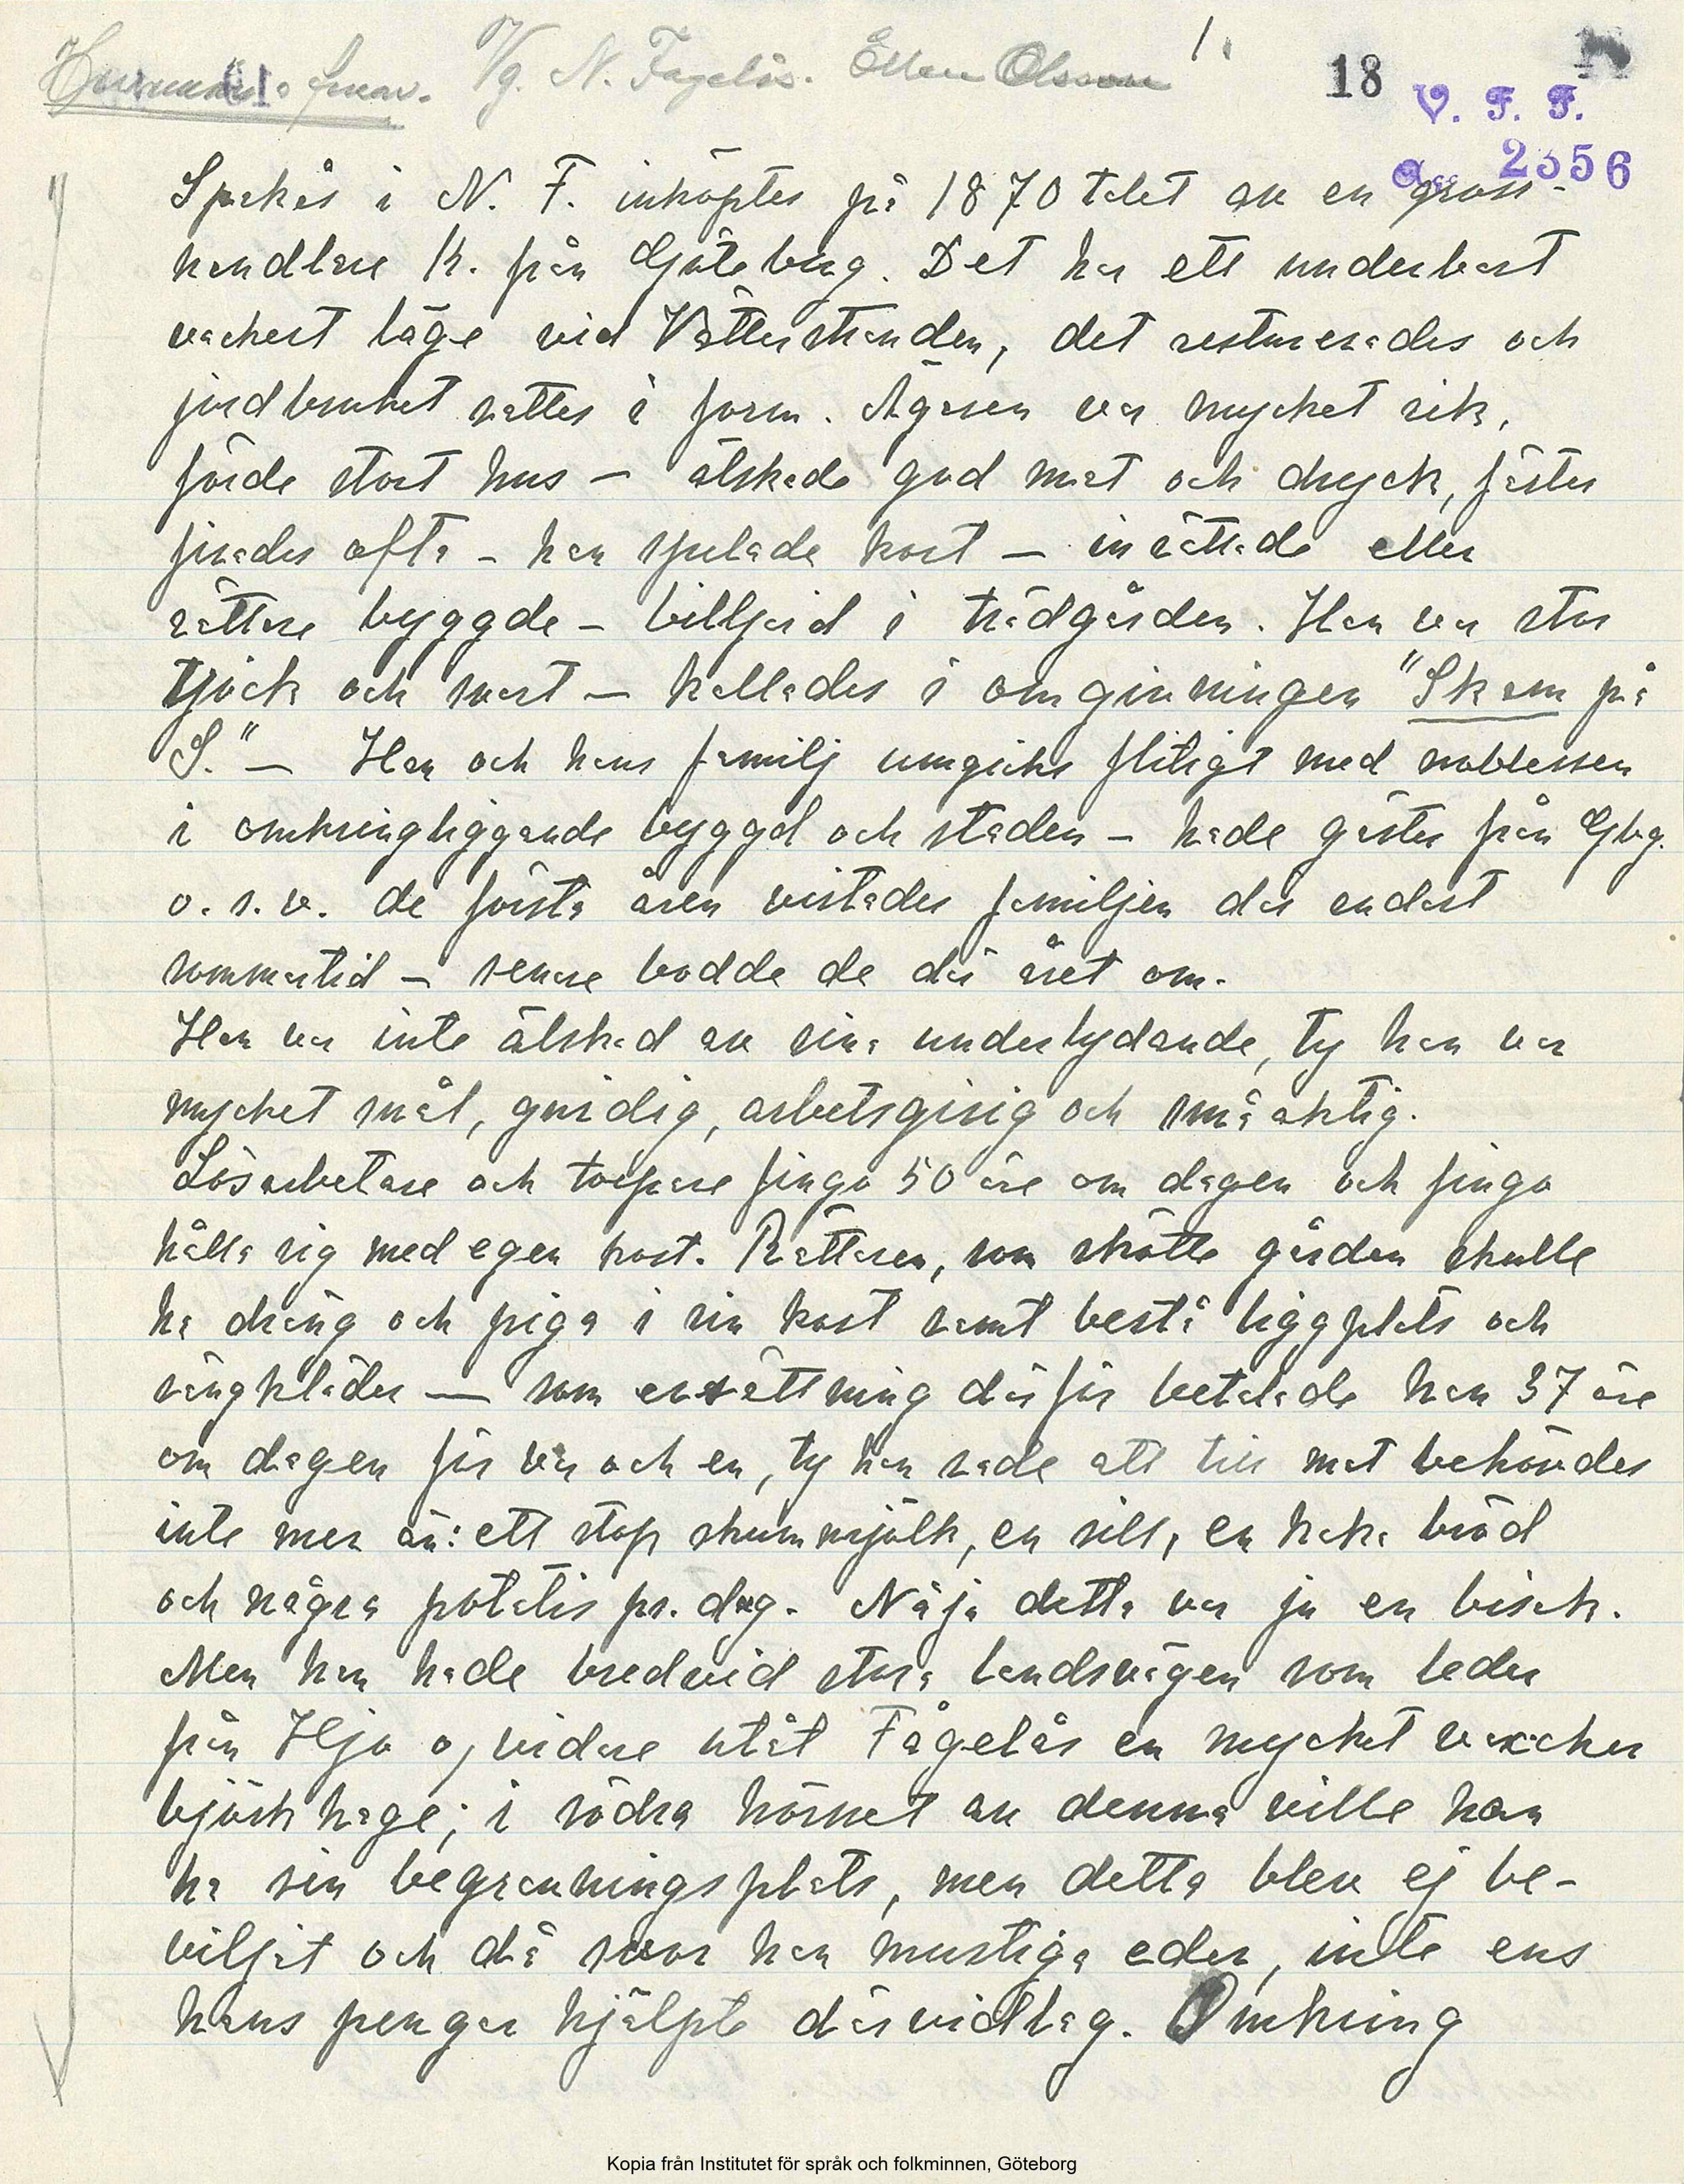 Vg. N. Fågelås. Ellen Olsson 1.
18
V. F. F.
2356
Spakås i N. F. inköptes på 1870 talet av en gross-
handlare K. från Göteborg. Det har ett underbart
vackert läge vid Vätterstranden, det restaurerades och
jordbruket sattes i form. Ägaren var mycket rik,
förde stort hus — älskade god mat och dryck, fester
firades ofta — han spelade kort — inrättade eller
rättare byggde — billjard i trädgården. Han var stor
tjock och svart — kallades i omgivningen "Skam på
S." — Han och hans familj umgicks flitigt med noblessen
i omkringliggande byggd och staden — hade gäster från Gbg.
o. s. v. de första åren vistades familjen där endast
sommartid — senare bodde de där året om.
Han var inte älskad av sina underlydande, ty han var
mycket snål, gnidig, arbetsgirig och småaktig.
Lösarbetare och torpare fingo 50 öre om dagen och fingo
hålla sig med egen kost. Rättaren, som skötte gården skulle
ha dräng och piga i sin kost samt bestå liggplats och
sängkläder — som ersättning därför betalade han 37 öre
om dagen för var och en, ty han sade att till mat behövdes
inte mer än: ett stop skummjölk, en sill, en kaka bröd
och några potatis pr. dag. Nåja detta var ju en bisak.
Men han hade bredvid stora landsvägen som leder
från Hjo o, vidare utåt Fågelås en mycket vacker
björkhage; i södra hörnet av denna ville han
ha sin begravningsplats, men detta blev ej be-
viljat och då svor han mustiga eder, inte ens
hans pengar hjälpte därvidlag. Omkring
Kopia från Institutet för språk och folkminnen, Göteborg